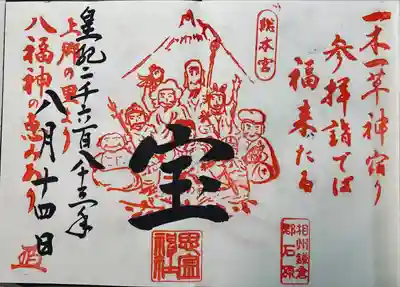 一木一草神宿り
参拝詣でば
福来たる
総本宮
相州鎌倉
郡石原
宝
思金
神社
皇紀二千六百八十三年
上郷の里より
八月十四日
八福神の恵み